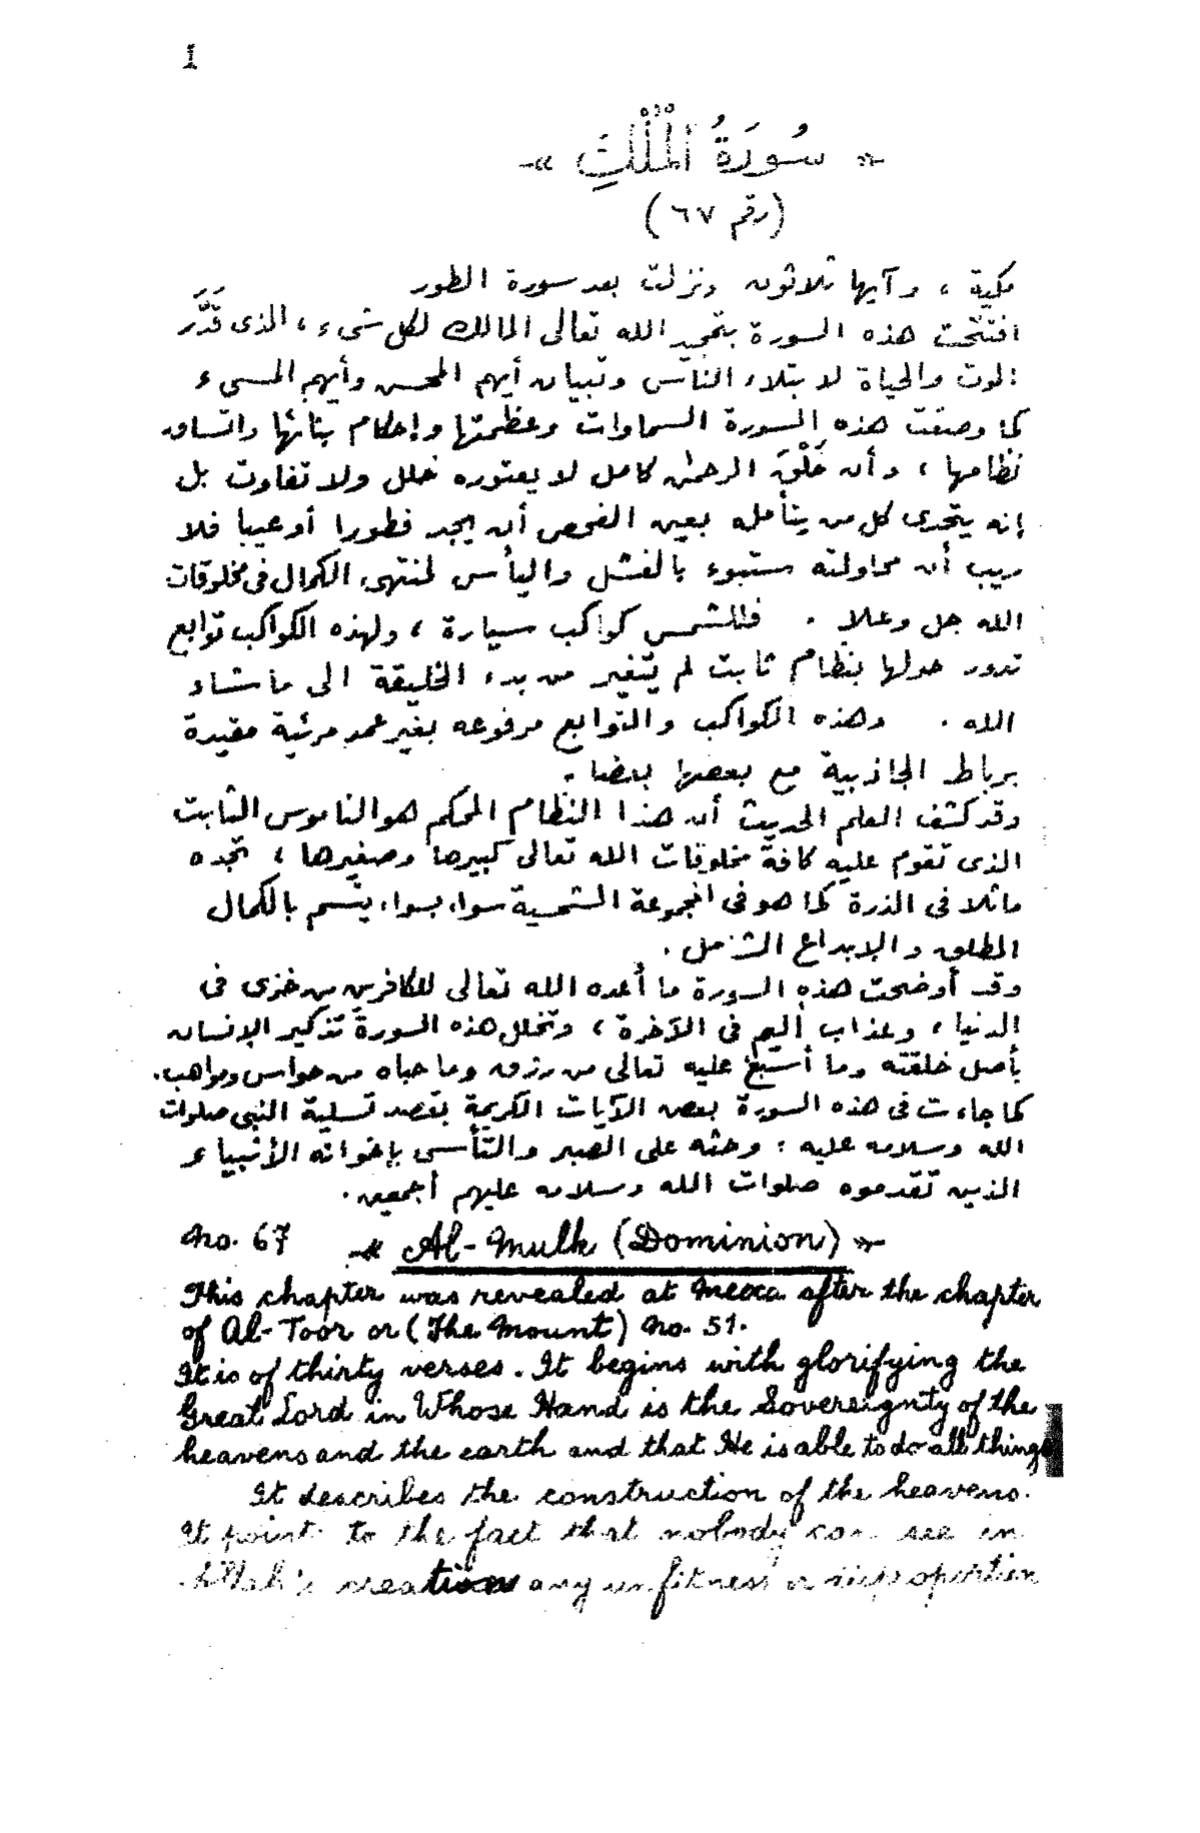 1
سُورَةُ المُلْكِ
(رقم ٦٧)
مكية ، وآيها ثلاثون ونزلت بعد سورة الطور
افتتحت هذه السورة بتمجيد الله تعالى المالك لكل شىء ، الذى قَدَّرَ
الموت والحياة لابتلاء الناس وتبيان أيهم المحسن وأيهم المسىء
كما وصفت هذه السورة السماوات وعظمتها وإحكام بنائها واتساق
نظامها ، وأن خَلْقَ الرحمن كامل لا يعتوره خلل ولا تفاوت بل
إنه يتحدى كل من يتأمله بعين الفحص أن يجد فطورا أو عيبا فلا
ريب أن محاولته ستبوء بالفشل واليأس لمنتهى الكمال فى مخلوقات
الله جل وعلا . فللشمس كواكب سيارة ، ولهذه الكواكب توابع
تدور حولها بنظام ثابت لم يتغير من بدء الخليقة الى ما شاء
الله . وهذه الكواكب والتوابع مرفوعه بغير عمد مرئية مقيدة
برباط الجاذبية مع بعضها بعضا .
وقد كشف العلم الحديث أن هذا النظام المحكم هو الناموس الثابت
الذى تقوم عليه كافة مخلوقات الله تعالى كبيرها وصغيرها ، تجده
ماثلا فى الذرة كما هو فى المجموعة الشمسية سواء بسواء، يتسم بالكمال
المطلق والإبداع الشامل .
وقد أوضحت هذه السورة ما أعده الله تعالى للكافرين من خزى فى
الدنيا ، وعذاب أليم فى الآخرة ، وتخلل هذه السورة تذكير الإنسان
بأصل خلقته وما أسبغ عليه تعالى من رزق وما حباه من حواس ومواهب.
كما جاءت فى هذه السورة بعض الآيات الكريمة بقصد تسلية النبى صلوات
الله وسلامه عليه ؛ وحثه على الصبر والتأسى بإخوانه الأنبياء
الذين تقدموه صلوات الله وسلامه عليهم أجمعين .
No. 67 Al-Mulk (Dominion)
This chapter was revealed at Mecca after the chapter
of Al-Toor or (The Mount) No. 51.
It is of thirty verses. It begins with glorifying the
Great Lord in Whose Hand is the Sovereignty of the
heavens and the earth and that He is able to do all things
It describes the construction of the heavens.
It point to the fact that nobody can see in
Allah's creation any unfitness or disproportion